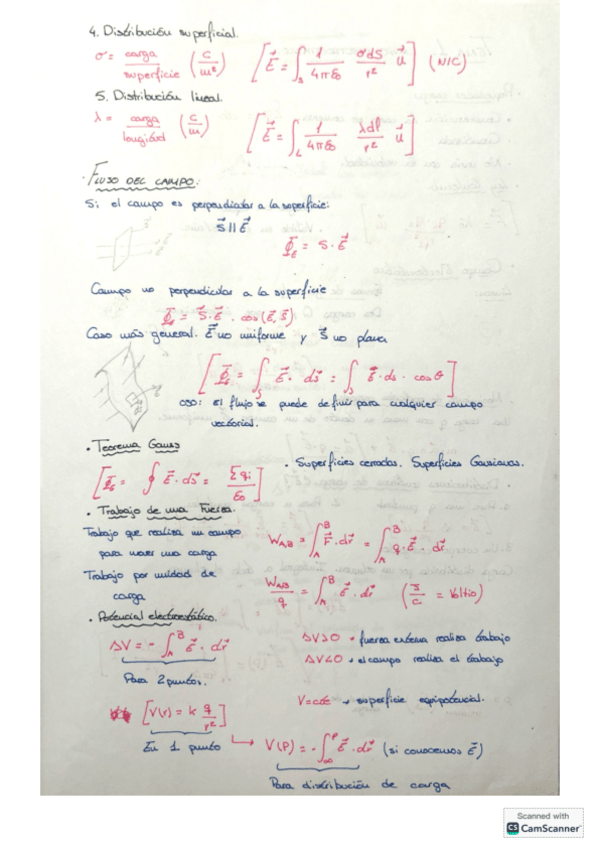 4. Distribución superficial.
σ = carga / superficie (C/m²) [E⃗ = ∫_S 1/4πε₀ σdS/r² u⃗] (N/C)
5. Distribución lineal.
λ = carga / longitud (C/m) [E⃗ = ∫_L 1/4πε₀ λdl/r² u⃗]
· FLUJO DEL CAMPO:
Si el campo es perpendicular a la superficie:
S⃗ || E⃗
Φ_E = S · E⃗
Campo no perpendicular a la superficie
Φ_E = S⃗ · E⃗ · cos(E⃗, S⃗)
Caso más general. E⃗ no uniforme y S⃗ no plana
[Φ_E = ∫_S E⃗ · ds⃗ = ∫_S E⃗ · ds · cos θ]
oso: El flujo se puede definir para cualquier campo
vectorial.
· Teorema Gauss
[Φ_E = ∮ E⃗ · ds⃗ = Σqi / ε₀] · Superficies cerradas. Superficies Gausianas.
· Trabajo de una Fuerza.
Trabajo que realiza un campo
para mover una carga
W_AB = ∫_A^B F⃗ · dr⃗ = ∫_A^B q · E⃗ · dr⃗
Trabajo por unidad de
carga
W_AB / q = ∫_A^B E⃗ · dr⃗ (J/C = Voltio)
· Potencial electrostático.
ΔV = - ∫_A^B E⃗ · dr⃗
Para 2 puntos.
ΔV>0 · fuerza externa realiza trabajo
ΔV<0 · el campo realiza el trabajo
V=cte → superficie equipotencial.
[V(r) = k q/r²]
En 1 punto
V(P) = - ∫_∞^P E⃗ · dr⃗ (si conocemos E⃗)
Para distribución de carga
Scanned with
CS CamScanner